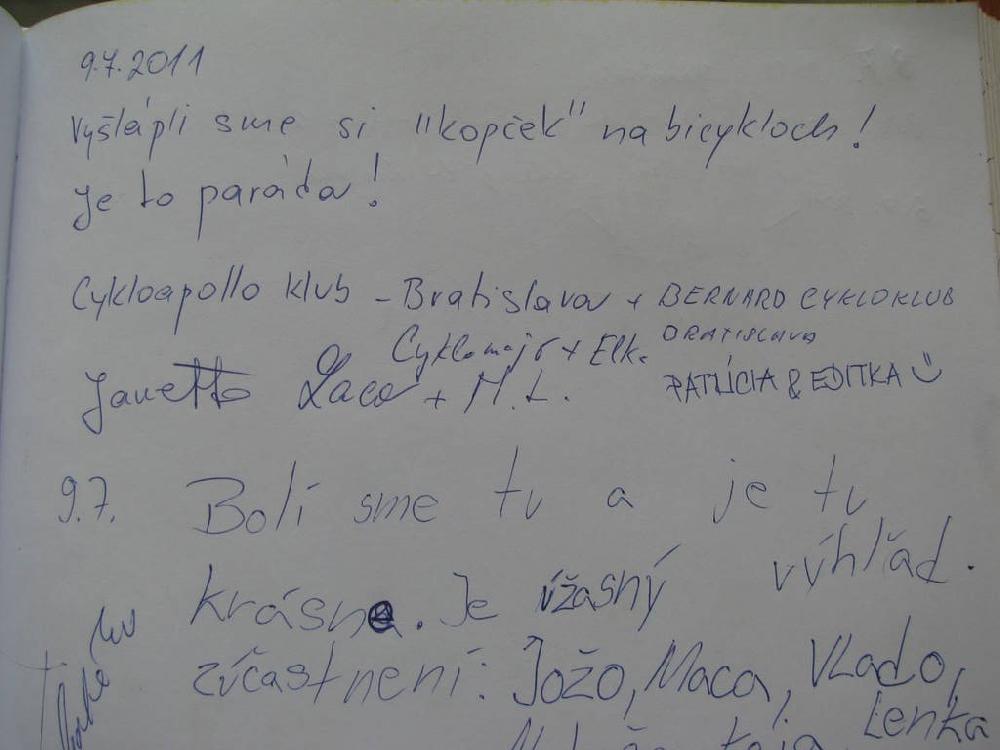 9.7.2011
Vyšlápli sme si "kopček" na bicykloch!
Je to paráda!
Cykloapollo klub - Bratislava + BERNARD CYKLOKLUB
BRATISLAVA
Cyklomajo + Elka
Janetta Laco + M.L. PATRÍCIA & EDITKA
9.7. Boli sme tu a je tu
krásne. Je úžasný výhľad.
zúčastnení: Jožo, Maca, Vlado,
Lenka